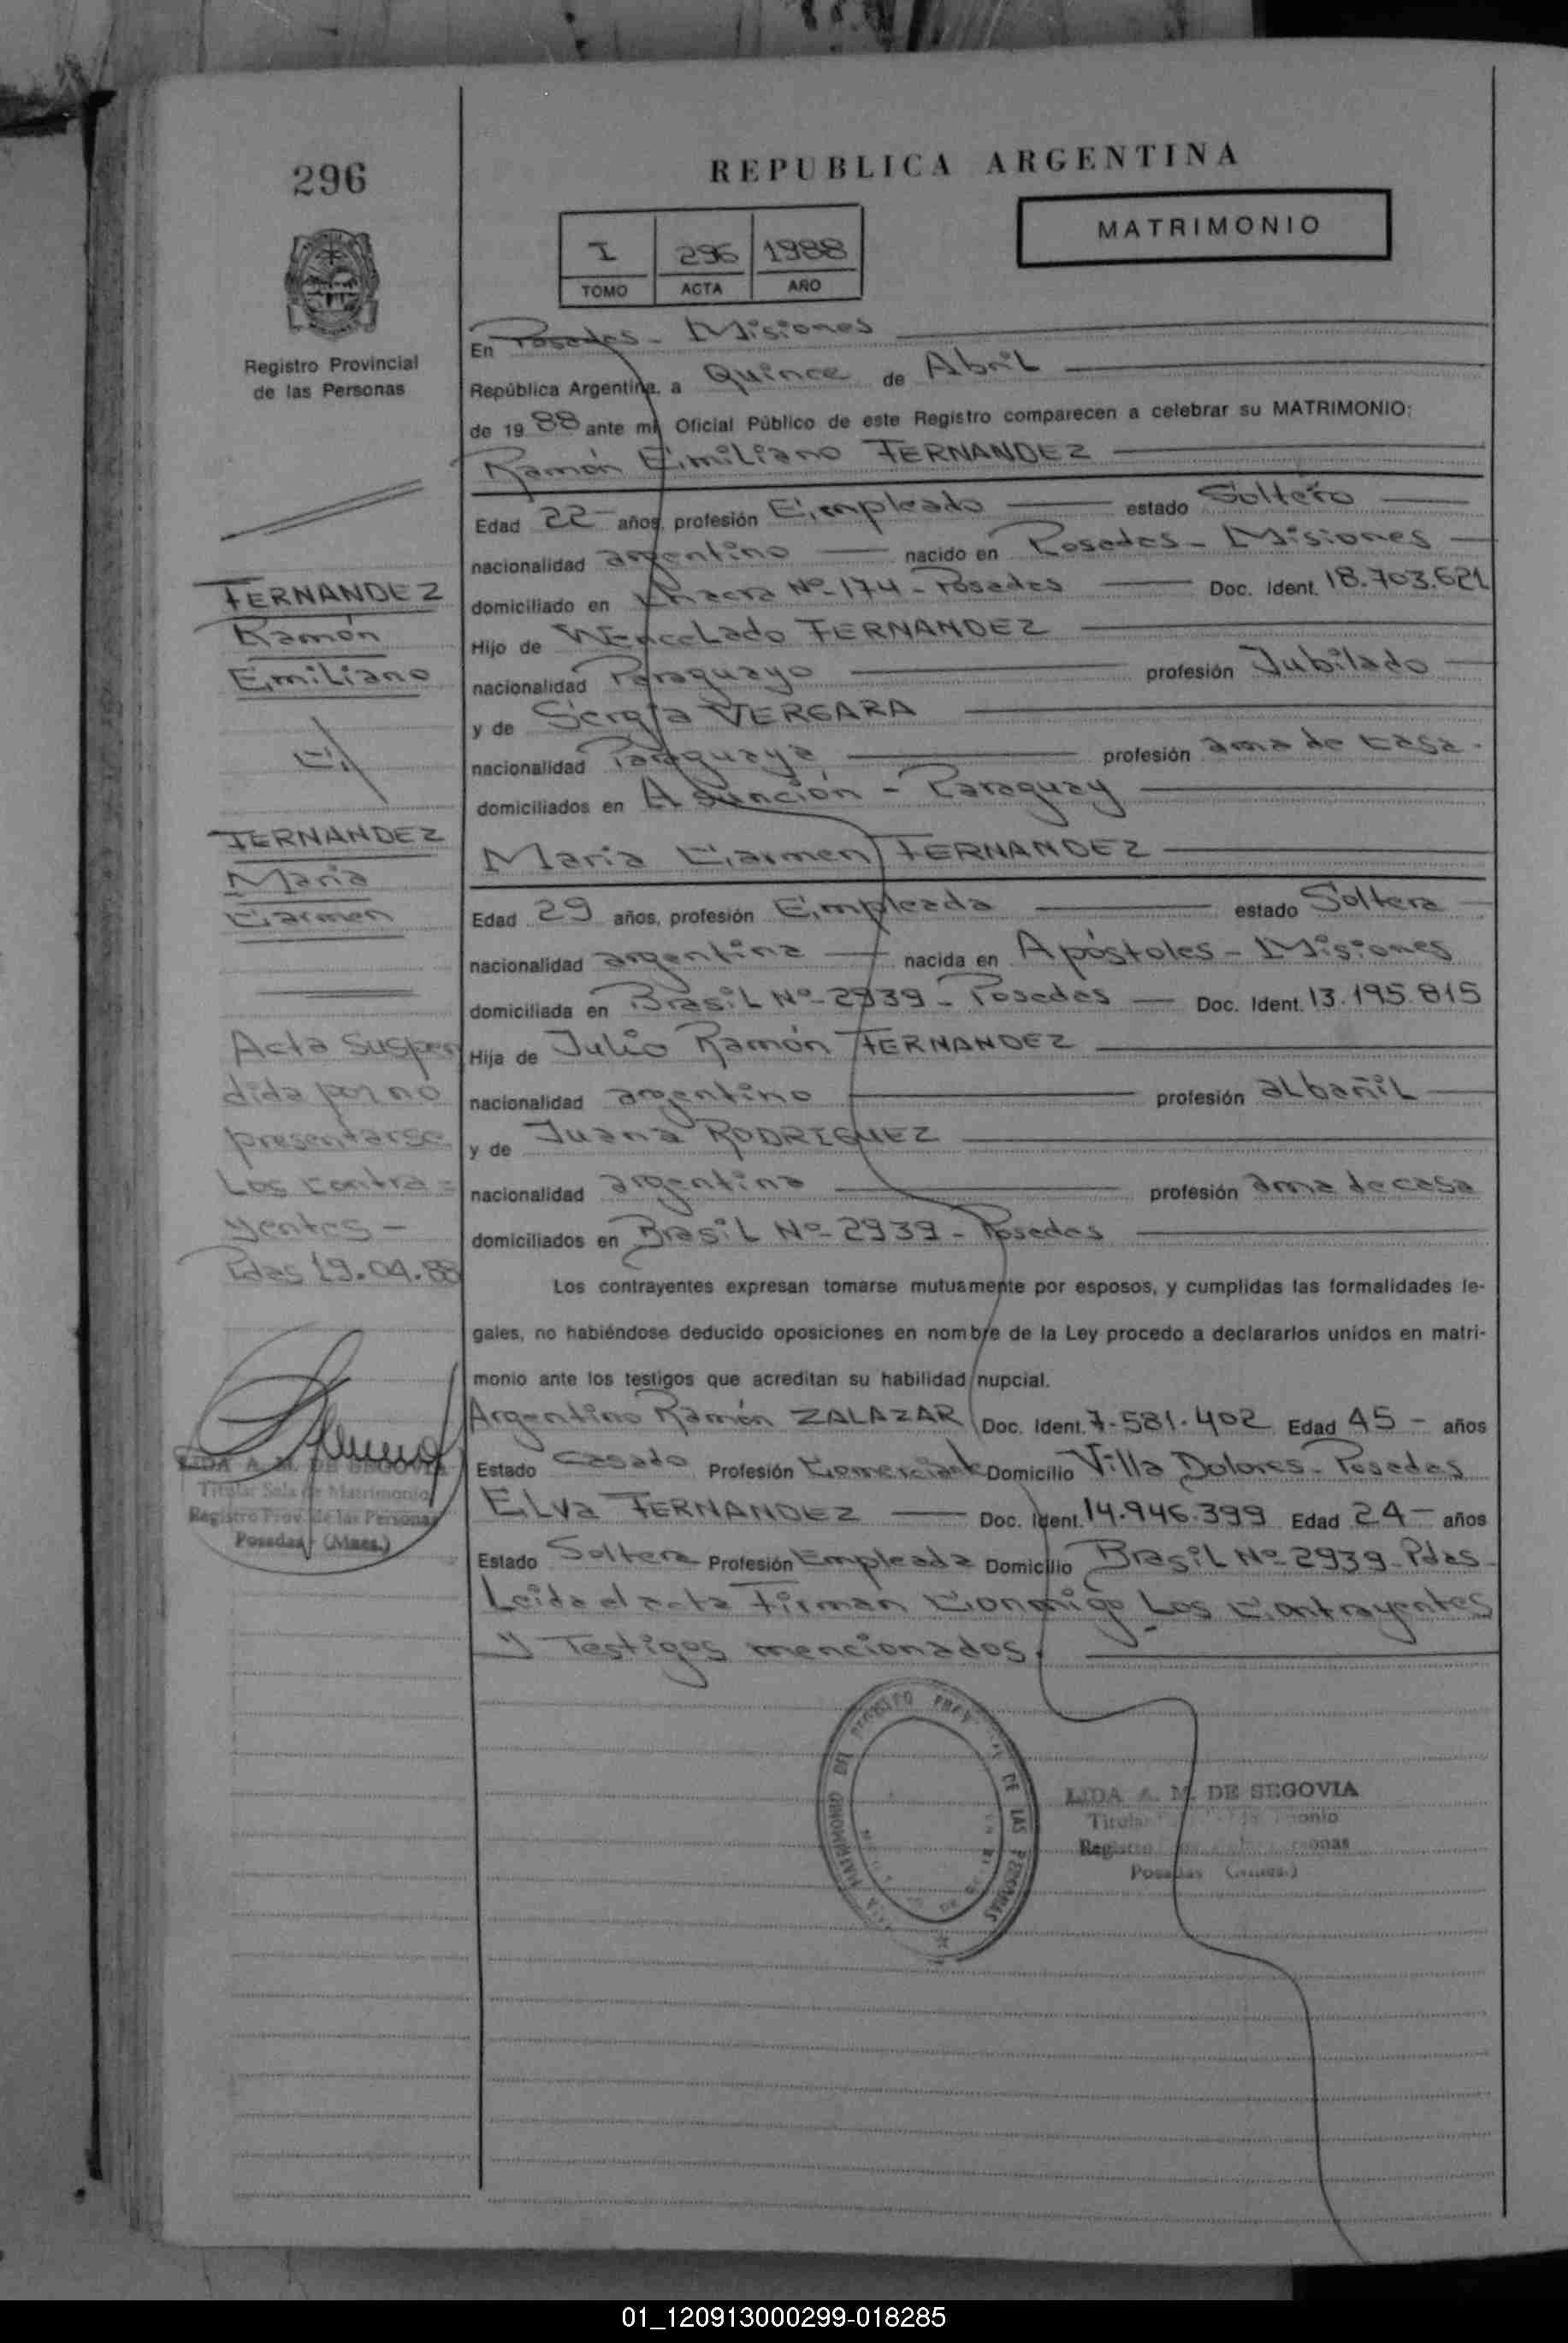 296
REPUBLICA ARGENTINA
MATRIMONIO
I 296 1988
TOMO ACTA AÑO
Registro Provincial
de las Personas
En Posadas - Misiones
República Argentina, a Quince de Abril
de 1988 ante mí Oficial Público de este Registro comparecen a celebrar su MATRIMONIO:
Ramón Emiliano FERNANDEZ
Edad 22 años, profesión Empleado estado Soltero
nacionalidad argentino nacido en Posadas - Misiones
domiciliado en Chacra Nº 174 - Posadas Doc. Ident. 18.703.621
Hijo de Wencelado FERNANDEZ
nacionalidad Paraguayo profesión Jubilado
y de Sergia VERGARA
nacionalidad Paraguaya profesión ama de casa.
domiciliados en Asunción - Paraguay
Maria Carmen FERNANDEZ
Edad 29 años, profesión Empleada estado Soltera
nacionalidad argentina nacida en Apóstoles - Misiones
domiciliada en Brasil Nº 2939 - Posadas Doc. Ident. 13.195.815
Hija de Julio Ramón FERNANDEZ
nacionalidad argentino profesión albañil
y de Juana RODRIGUEZ
nacionalidad argentina profesión ama de casa
domiciliados en Brasil Nº 2939 - Posadas
Los contrayentes expresan tomarse mutuamente por esposos, y cumplidas las formalidades le-
gales, no habiéndose deducido oposiciones en nombre de la Ley procedo a declararlos unidos en matri-
monio ante los testigos que acreditan su habilidad nupcial.
Argentino Ramón ZALAZAR Doc. Ident. 7.581.402 Edad 45 - años
Estado Casado Profesión Comerciante Domicilio Villa Dolores - Posadas
Elva FERNANDEZ Doc. Ident. 14.946.399 Edad 24 - años
Estado Soltera Profesión Empleada Domicilio Brasil Nº 2939 - Pdas
Leida el acta Firman Conmigo Los Contrayentes
y Testigos mencionados.
FERNANDEZ
Ramón
Emiliano
FERNANDEZ
Maria
Carmen
Acta Suspen
dida por no
presentarse
Los contra =
yentes -
Pdas 19.04.88
LIDA A. M. DE SEGOVIA
Titular Sala de Matrimonio
Registro Prov. de las Personas
Posadas (Mnes.)
LIDA A. M. DE SEGOVIA
Titular
Registro
Posadas
MATRIMONIO DEL REGISTRO DE LAS PERSONAS
01_120913000299-018285